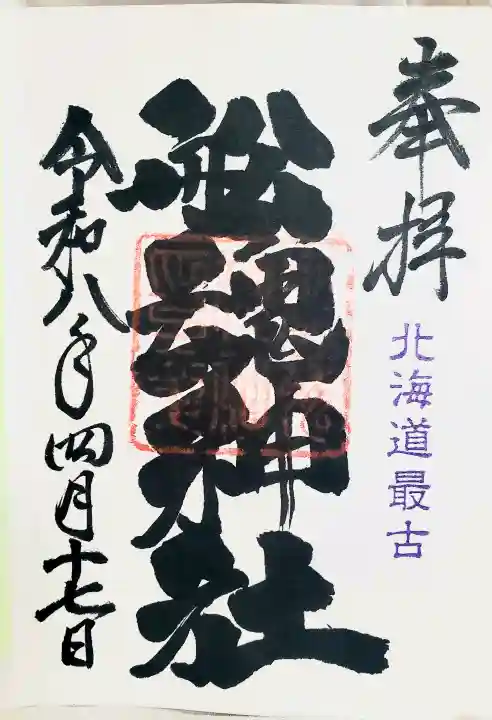 奉拝
北海道最古
舩魂神社
令和八年四月十七日